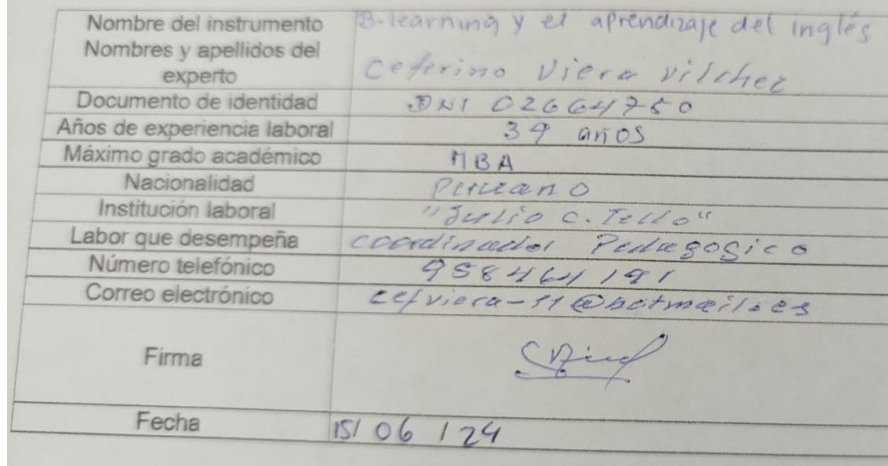 Nombre del instrumento B-learning y el aprendizaje del inglés
Nombres y apellidos del
experto Ceferino Viera Vilchez
Documento de identidad DNI 02664750
Años de experiencia laboral 39 años
Máximo grado académico MBA
Nacionalidad Peruano
Institución laboral "Julio C. Tello"
Labor que desempeña coordinador Pedagogico
Número telefónico 958464191
Correo electrónico cefviera-11@hotmail.es
Firma
Fecha 15/ 06 / 24